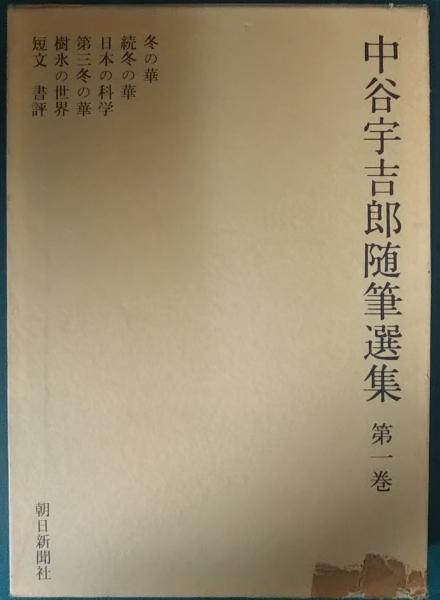 中谷宇吉郎随筆選集 第一巻
冬の華
続冬の華
日本の科学
第三冬の華
樹氷の世界
短文 書評
朝日新聞社